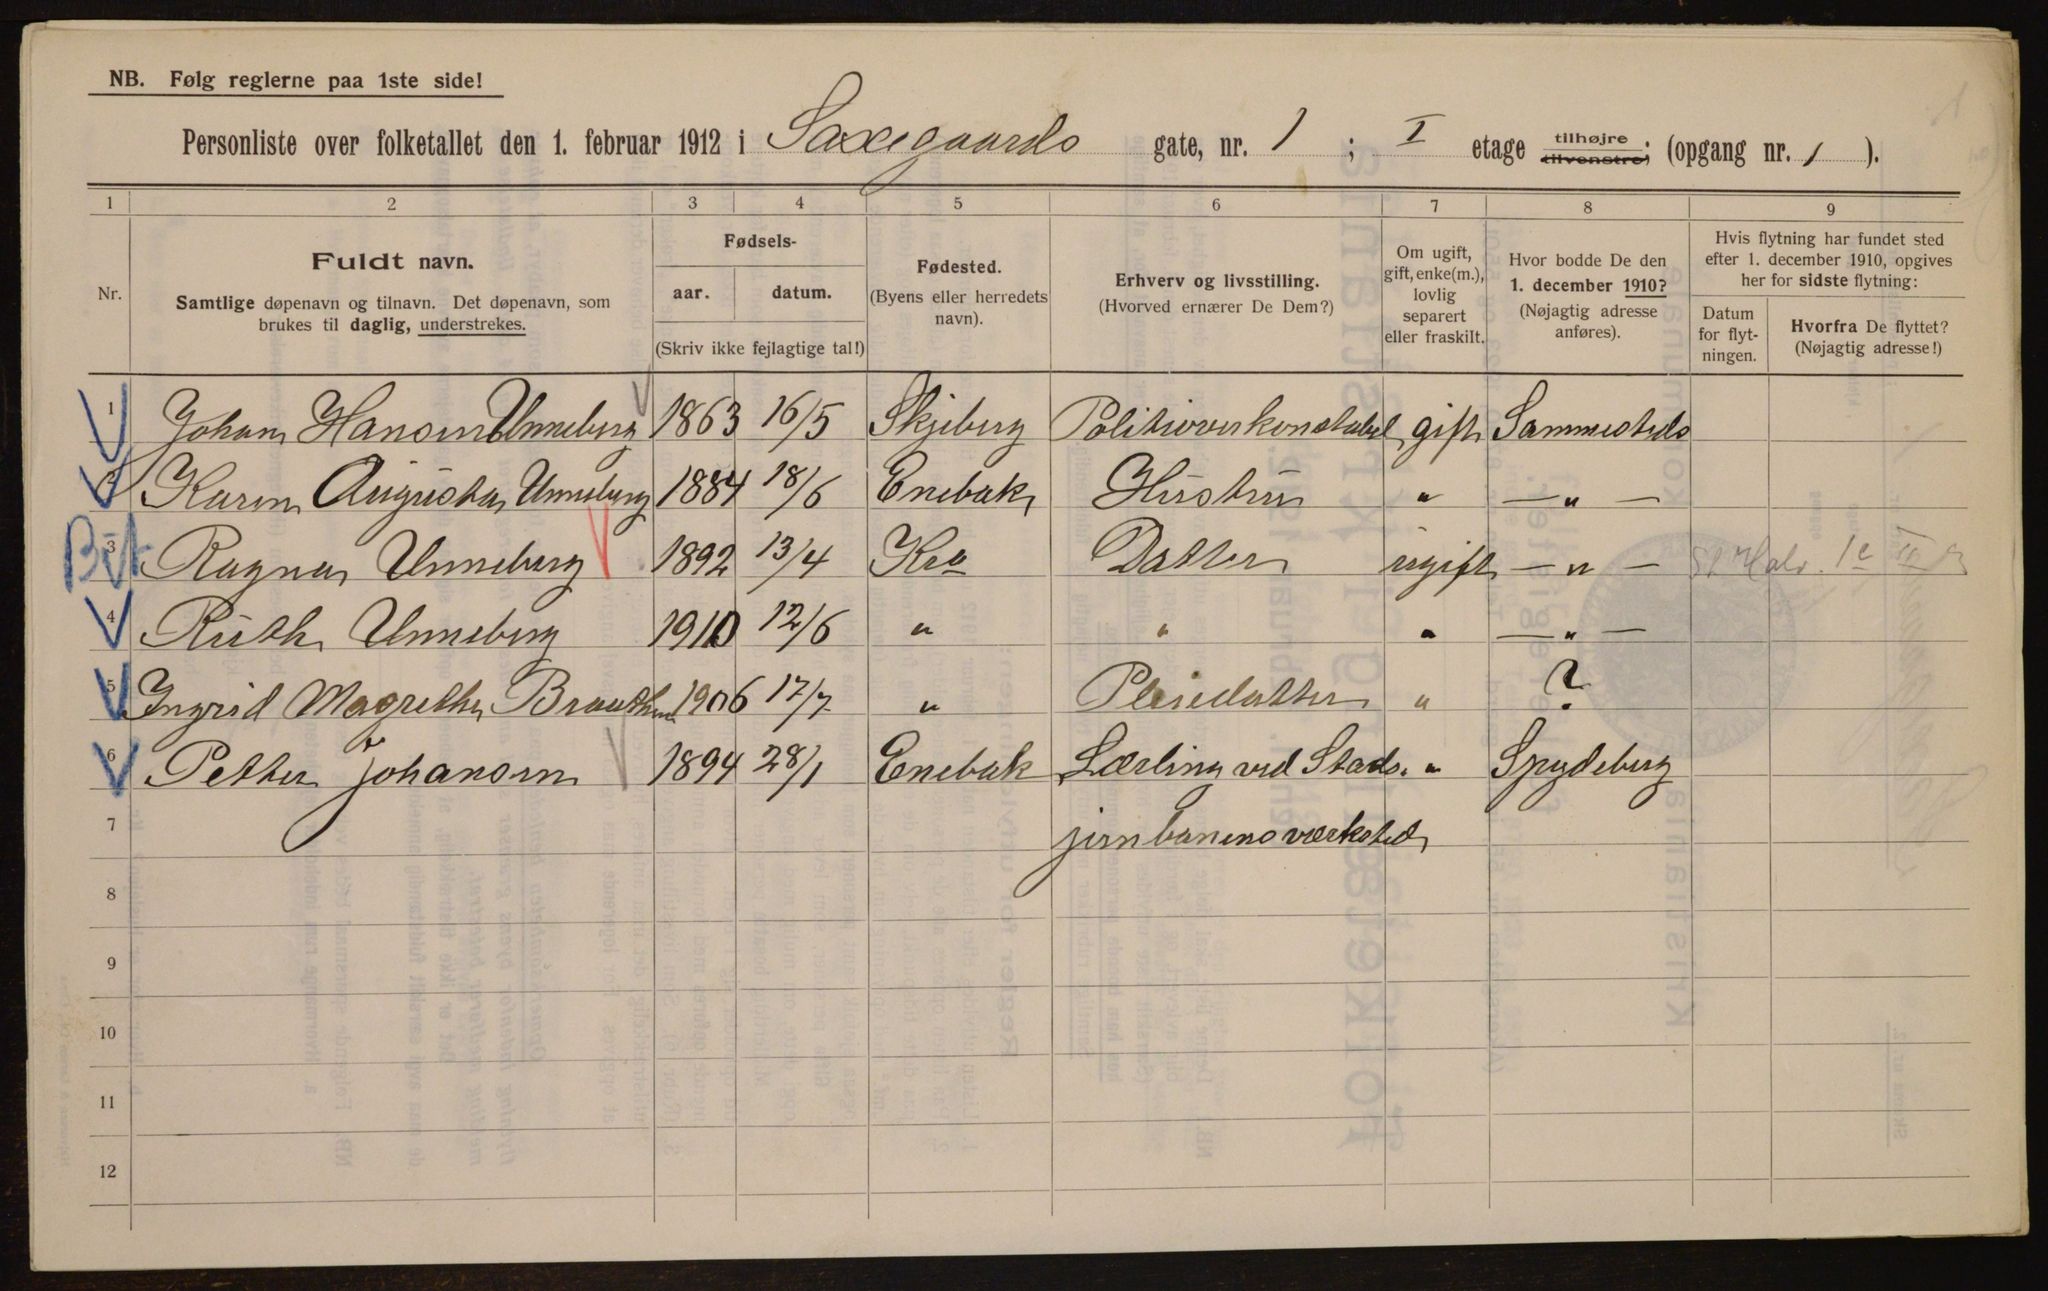 NB. Følg reglerne paa 1ste side!
Personliste over folketallet den 1. februar 1912 i Saxegaards gate, nr. 1 ; I etage tilhøjre. tilvenstre, (opgang nr. 1 ).
1 2 3 4 5 6 7 8 9
Nr.
Fuldt navn.
Samtlige døpenavn og tilnavn. Det døpenavn, som
brukes til daglig, understrekes.
Fødsels-
aar. datum.
(Skriv ikke fejlagtige tal!)
Fødested.
(Byens eller herredets
navn).
Erhverv og livsstilling.
(Hvorved ernærer De Dem?)
Om ugift,
gift, enke(m.),
lovlig
separert
eller fraskilt.
Hvor bodde De den
1. december 1910?
(Nøjagtig adresse
anføres).
Hvis flytning har fundet sted
efter 1. december 1910, opgives
her for sidste flytning:
Datum
for flyt-
ningen.
Hvorfra De flyttet?
(Nøjagtig adresse!)
1 Johan Hansen Unneberg 1863 16/5 Skjeberg Politioverkonstabel gift Sammesteds
2 Karen Augusta Unneberg 1884 18/6 Enebak Hustru " — " —
3 Ragna Unneberg 1892 13/4 Kra Datter ugift — " —
4 Ruth Unneberg 1910 12/6 " " " — " —
5 Ingrid Magrethe 1906 17/7 " Pleiedatter " ?
6 Petter Johansen 1894 28/1 Enebak Lærling ved Stads- " Spydeberg
7 jernbanens værksted
8
9
10
11
12